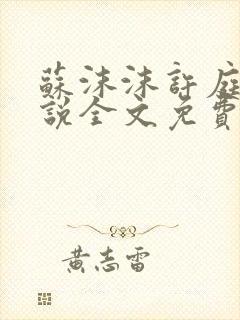 蘇沫沫許庭
說全文免費
黃志雷